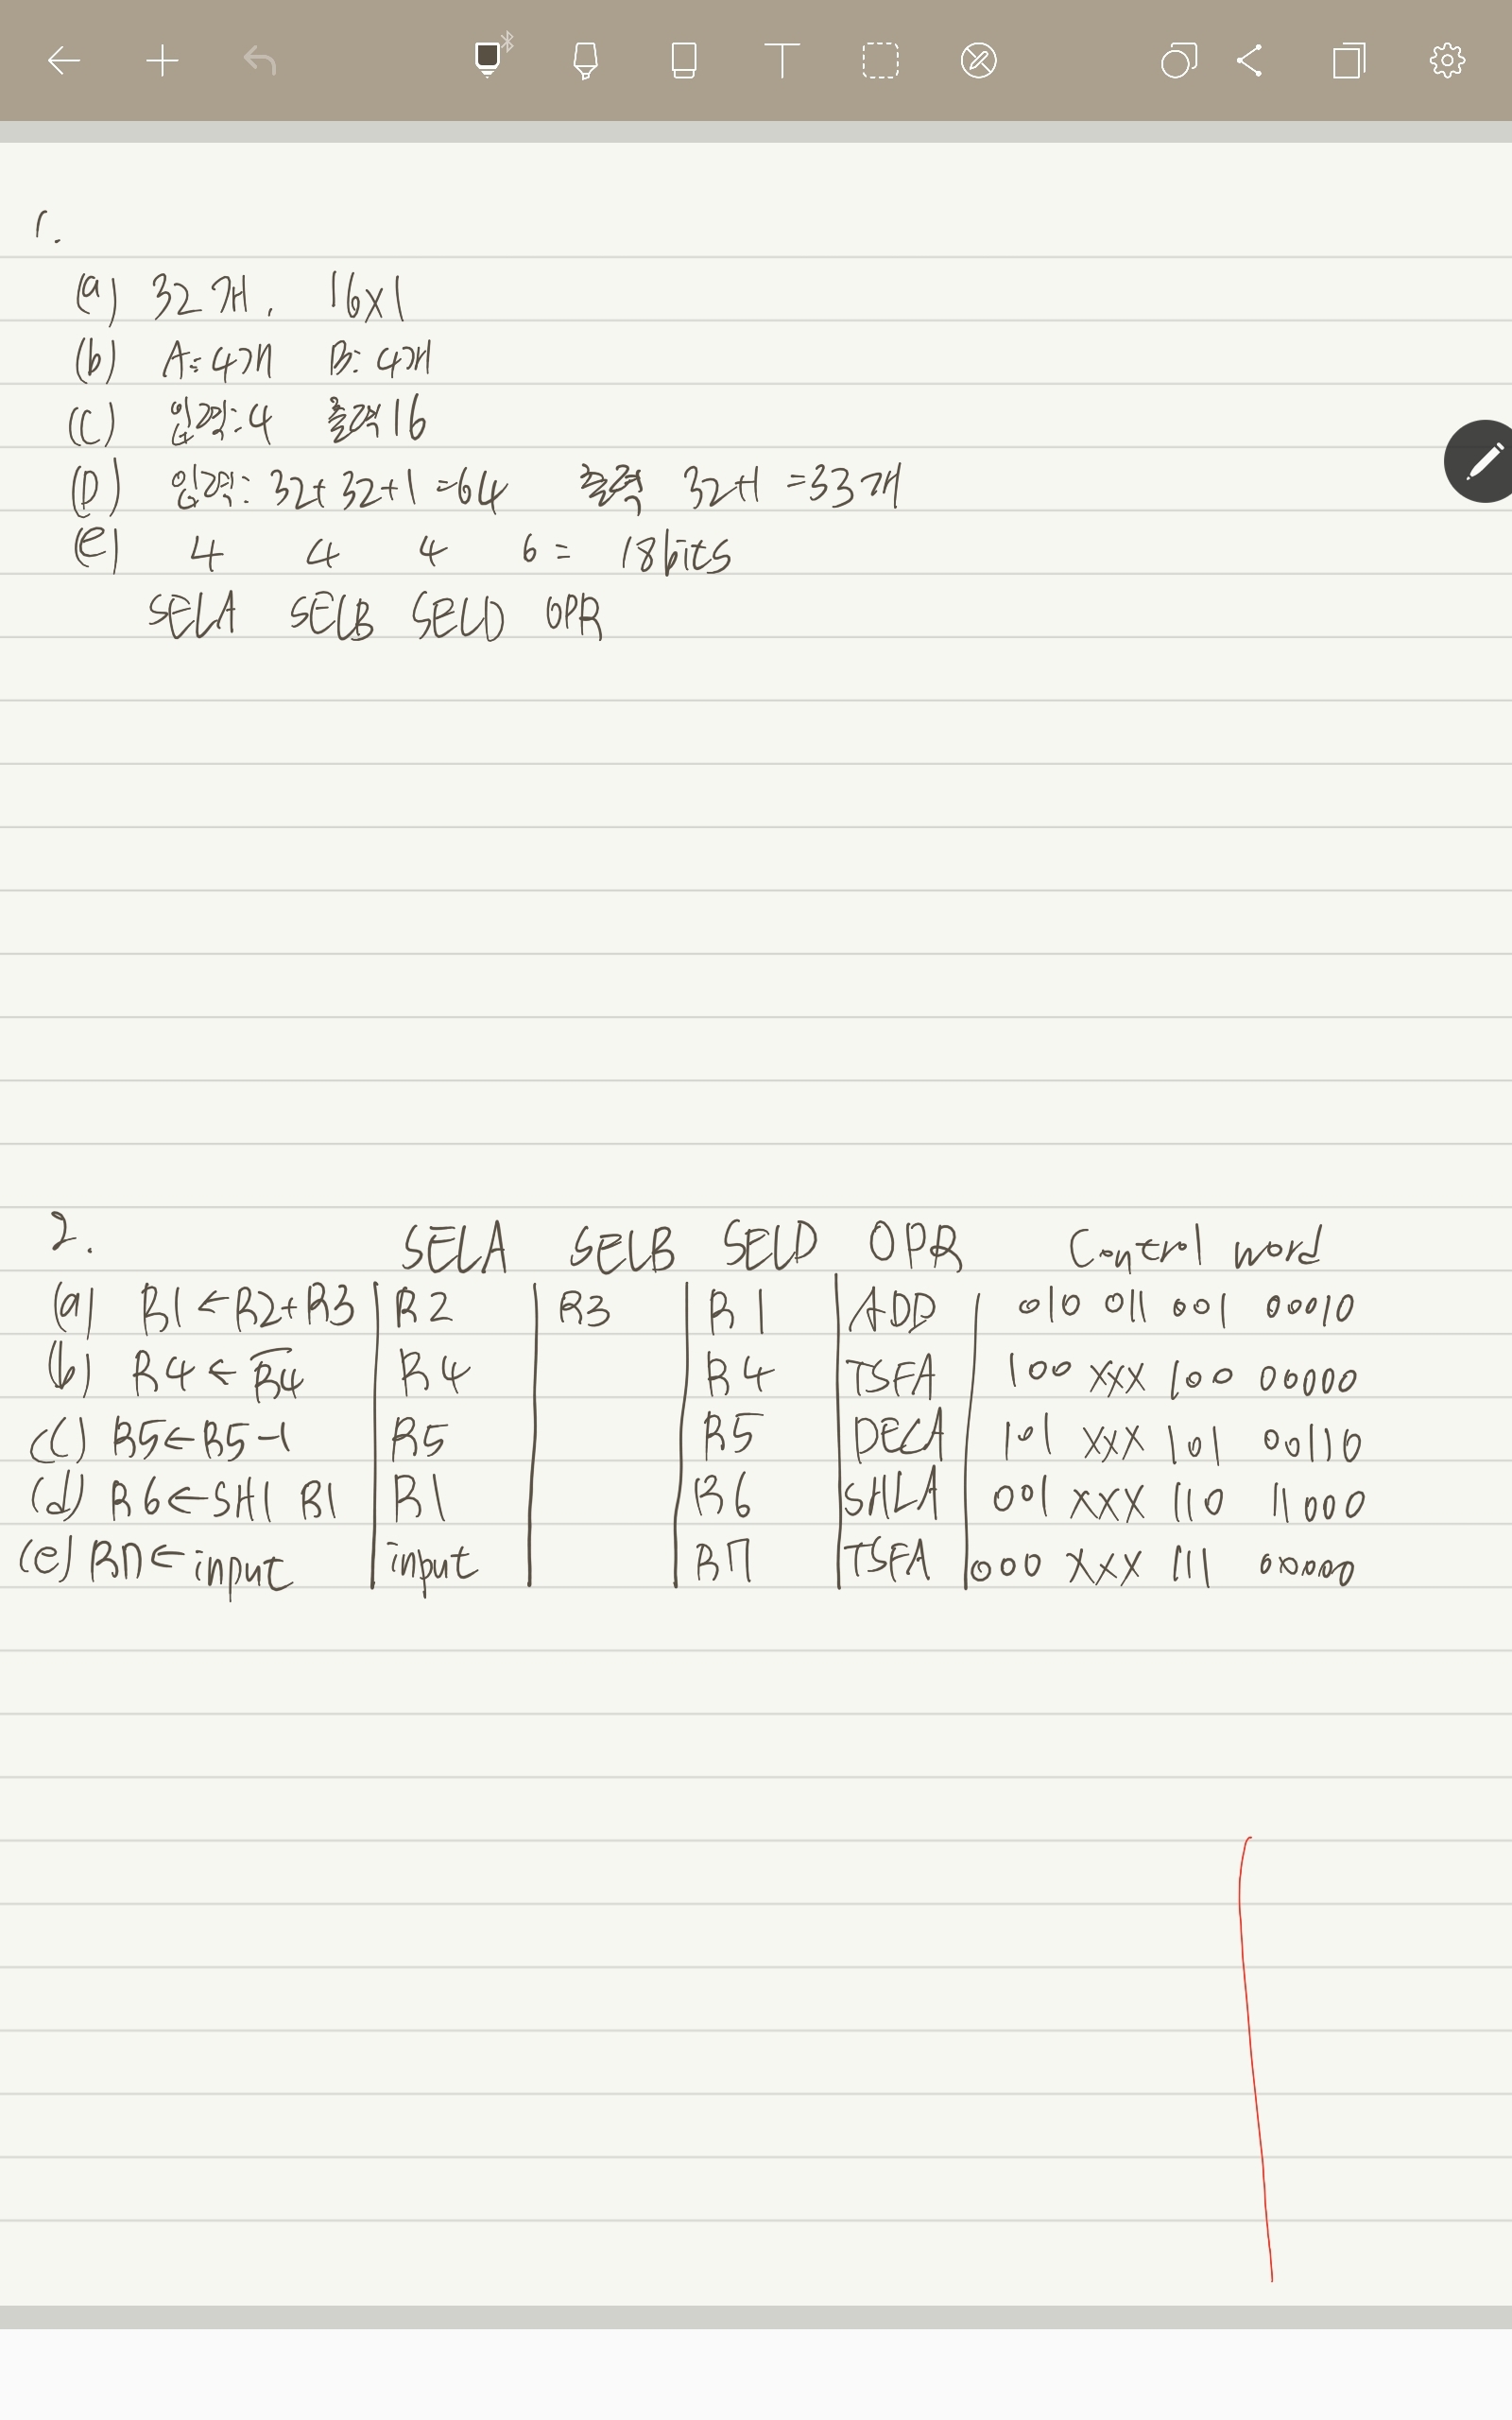 1.
(a) 32개. 16x1
(b) A: 4개 B: 4개
(C) 입력: 4 출력 16
(D) 입력: 32+32+1=64 출력 32+1=33개
(e) 4 4 4 6 = 18bits
SELA SELB SELD OPR
2. SELA SELB SELD OPR Control word
(a) R1←R2+R3 R2 R3 R1 ADD 010 011 001 00010
(b) R4←R̅4̅ R4 R4 TSFA 100 xxx 100 00000
(C) R5←R5-1 R5 R5 DECA 101 xxx 101 00110
(d) R6←SH1 R1 R1 R6 SHLA 001 xxx 110 11000
(e) R7←input input R7 TSFA 000 xxx 111 00000